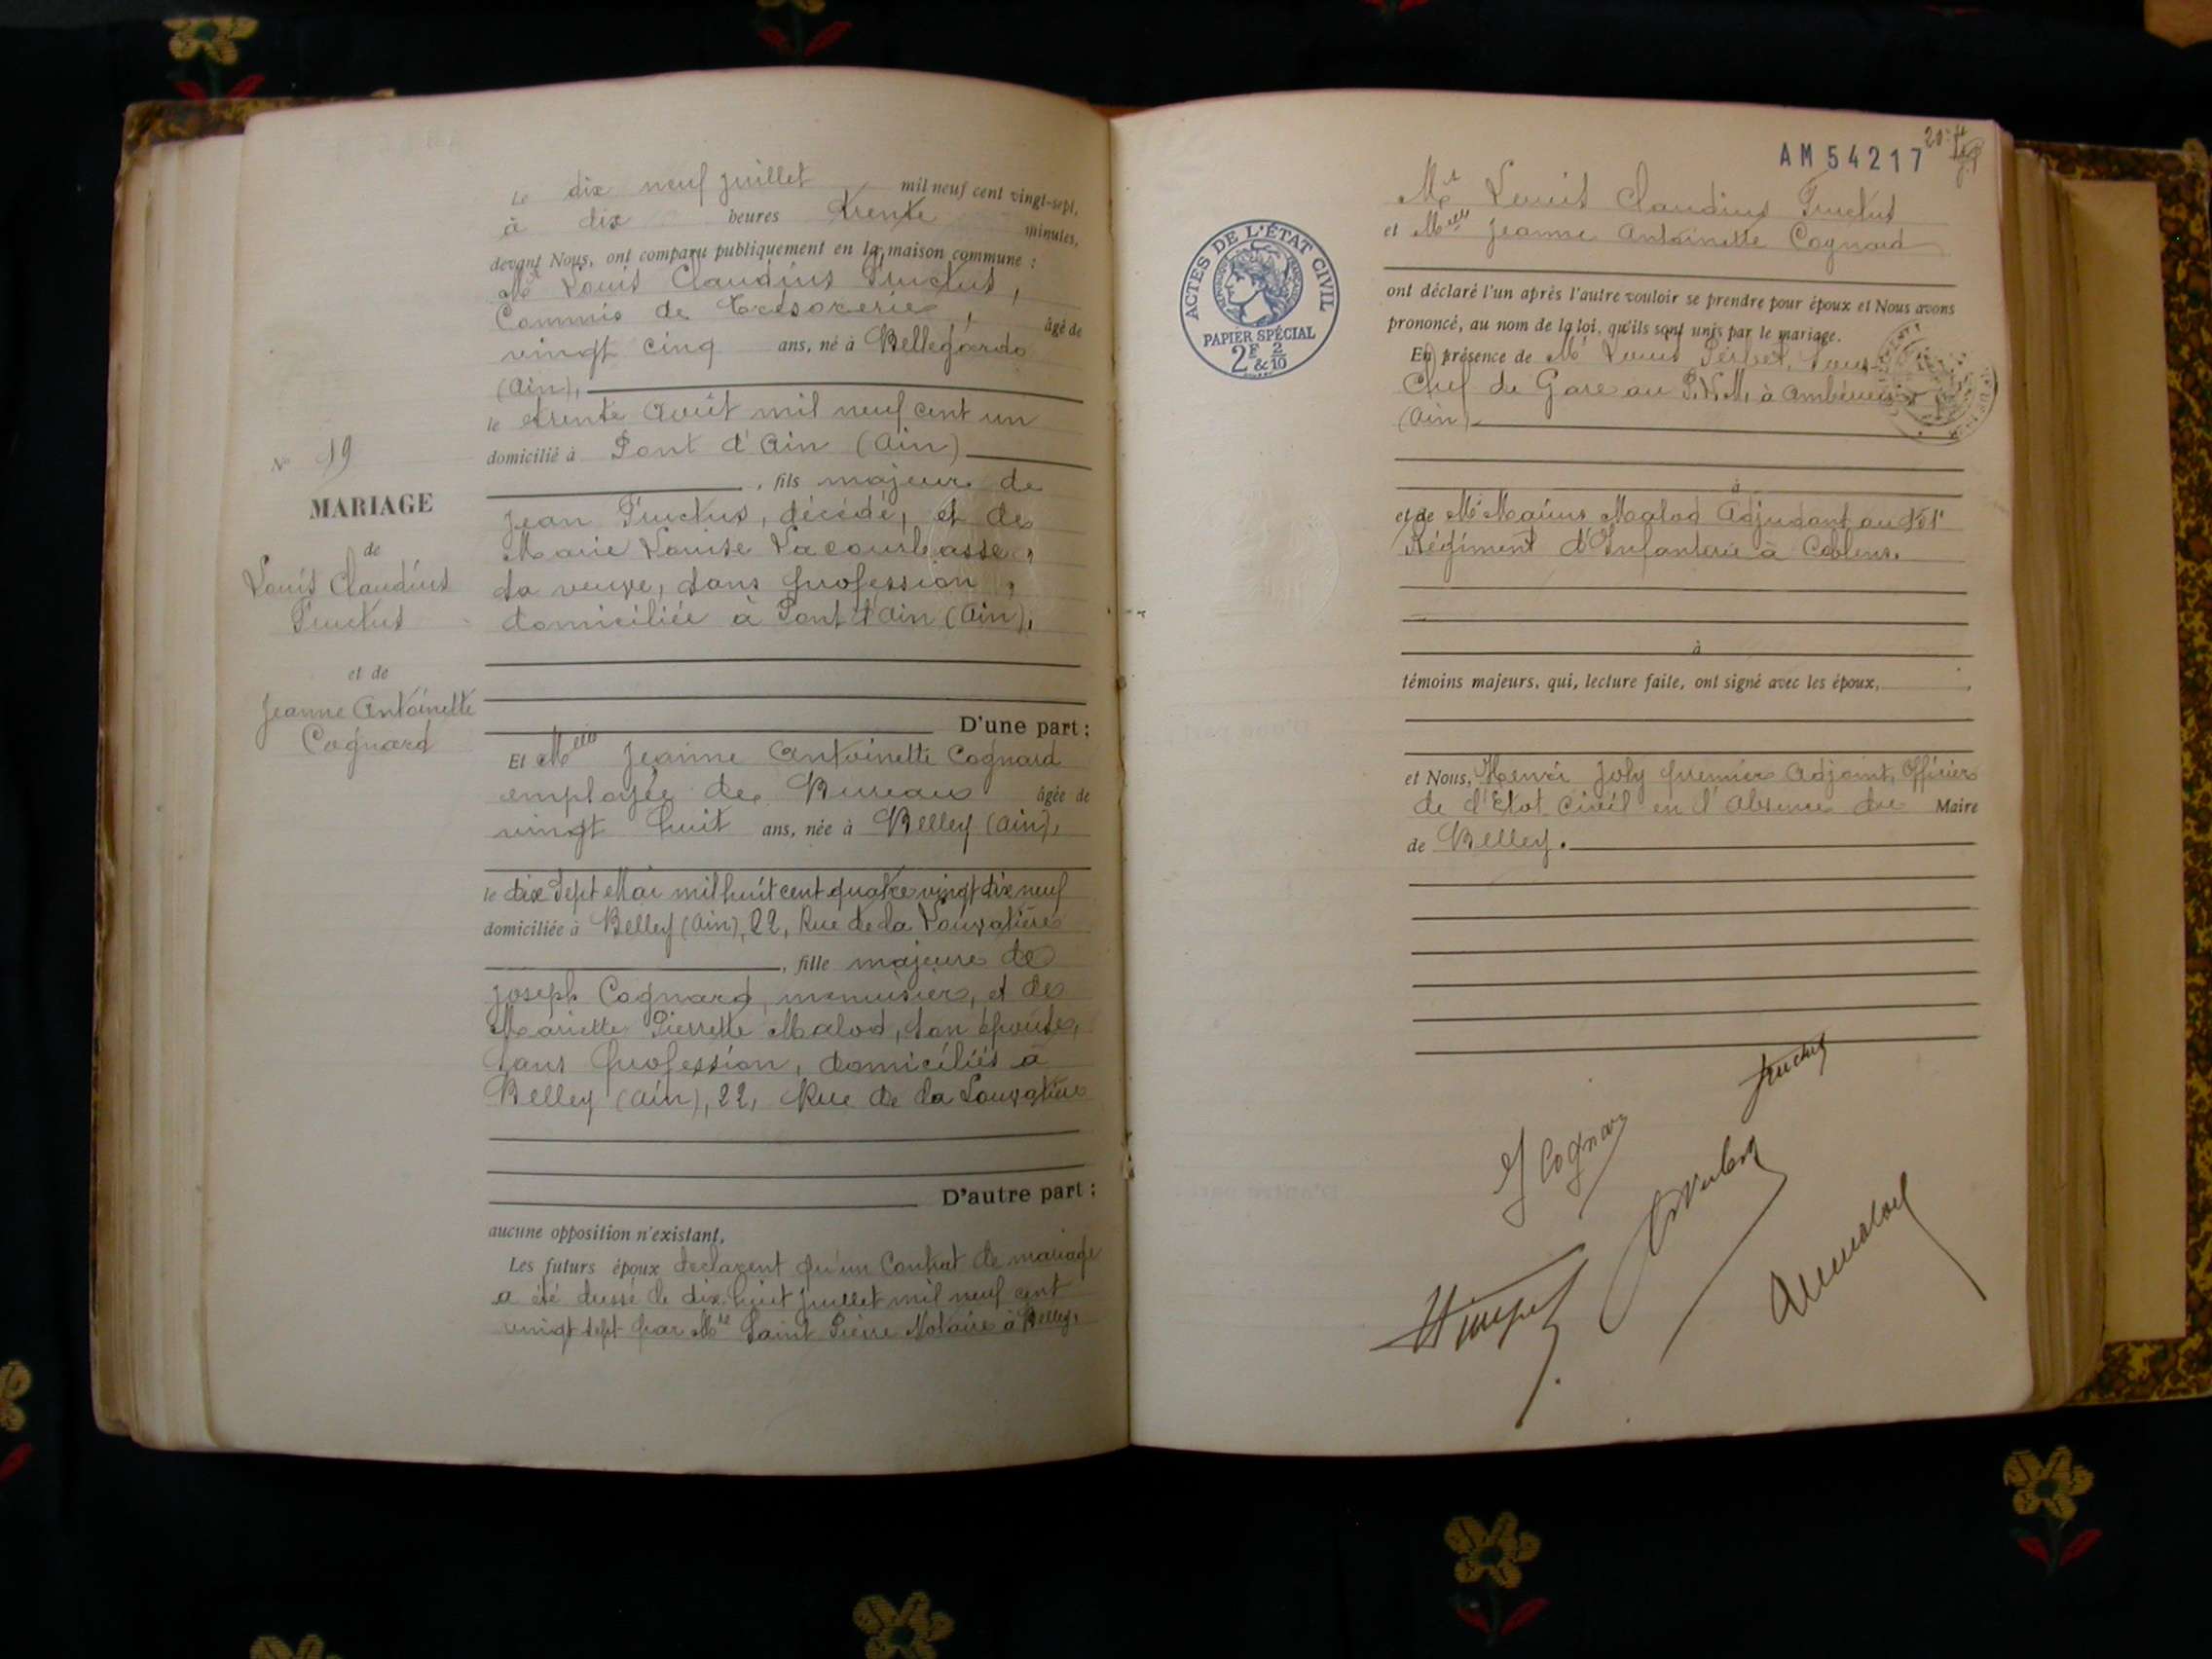 Le dix neuf juillet mil neuf cent vingt-sept,
à dix heures trente minutes,
devant Nous, ont comparu publiquement en la maison commune :
Mr Louis Claudius Fructus,
Commis de trésorerie, âgé de
vingt cinq ans, né à Bellegarde
(Ain),
le trente Août mil neuf cent un
domicilié à Pont d'Ain (Ain)
, fils majeur de
Jean Fructus, décédé, et de
Marie Louise Lacourbasse,
sa veuve, sans profession,
domiciliée à Pont d'Ain (Ain),
N° 19
MARIAGE
de
Louis Claudius
Fructus
et de
Jeanne Antoinette
Cognard
D'une part :
Et Melle Jeanne Antoinette Cognard
employée de Bureau âgée de
vingt huit ans, née à Belley (Ain),
le dix sept Mai mil huit cent quatre vingt dix neuf
domiciliée à Belley (Ain), 22, Rue de la
, fille majeure de
Joseph Cognard, menuisier, et de
Mariette Pierrette Malod, son épouse,
sans profession, domiciliés à
Belley (Ain), 22, Rue de la
D'autre part :
aucune opposition n'existant,
Les futurs époux déclarent qu'un Contrat de mariage
a été dressé le dix huit juillet mil neuf cent
vingt sept par Me Saint Pierre Notaire à Belley.
AM 54217
Mr Louis Claudius Fructus
et Melle Jeanne Antoinette Cognard
ACTES DE L'ÉTAT CIVIL
RÉPUBLIQUE FRANÇAISE
PAPIER SPÉCIAL
2F & 2/10
ont déclaré l'un après l'autre vouloir se prendre pour époux et Nous avons
prononcé, au nom de la loi, qu'ils sont unis par le mariage.
En présence de Mr Louis Sous-
Chef de Gare au P.L.M. à Ambérieu
(Ain)
à
et de Mr Malod Adjudant au
Régiment d'Infanterie à Coblens.
à
témoins majeurs, qui, lecture faite, ont signé avec les époux,
et Nous, Henri Joly premier Adjoint, Officier
de l'Etat Civil en l'Absence du Maire
de Belley.
Fructus
J Cognard